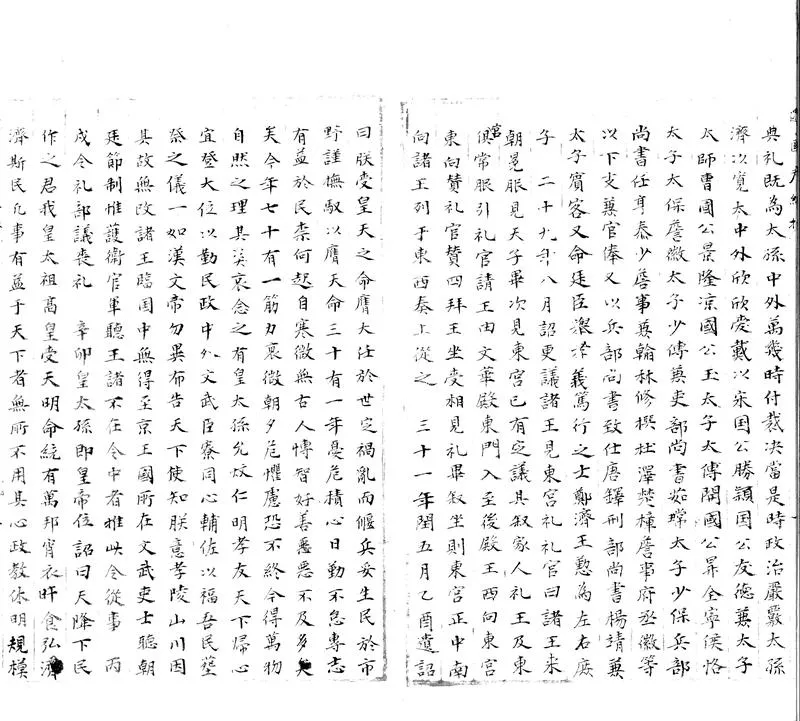 典礼既為太孫中外萬幾時付裁决當是時政治嚴覈太孫
濟以寬太中外欣欣愛戴以宋国公勝頴国公友德兼太子
太師曹國公景隆凉國公玉太子太傅開國公昇全寧侯恪
太子太保詹徽太子少傅兼吏部尚書茹瑺太子少保兵部
尚書任亨泰少詹事兼翰林修撰杜澤楚樟詹事府丞徽等
以下支兼官俸又以兵部尚書致仕唐鐸刑部尚書楊靖兼
太子賓客又命廷臣濂孝義篤行之士鄭濟王懃為左右庶
子 二十九年八月詔更議諸王見東宮礼礼官曰諸王来
朝冕服見天子畢次見東宮已有定議具叙家人礼王及東
宮俱常服引礼官請王由文華殿東門入至後殿王西向東宮
東向賛礼官賛四拜王坐受相見礼畢叙坐則東宮正中南
向諸王列于東西奏上從之 三十一年閏五月乙酉遺詔
曰朕受皇天之命膺大任於世定禍亂而偃兵妥生民於市
野謹撫馭以膺天命三十有一年憂危積心日勤不怠專志
有益於民柰何起自寒微無古人博智好善惡惡不及多矣
矣今年七十有一筋力衰微朝夕危懼慮恐不終今得萬物
自然之理其奚哀念之有皇太孫允炆仁明孝友天下歸心
宜登大位以勤民政中外文武臣寮同心輔佐以福吾民塟
祭之儀一如漢文帝勿異布告天下使知朕意孝陵山川因
其故無改諸王臨国中無得至京王國所在文武吏士聽朝
廷節制惟護衞官軍聽王諸不在令中者推此令從事 丙
戍令礼部議喪礼 辛卯皇太孫即皇帝位詔曰天降下民
作之君我皇太祖高皇受天明命統有萬邦宵衣旰食弘濟
濟斯民凢事有益于天下者無所不用其心政教休明規模